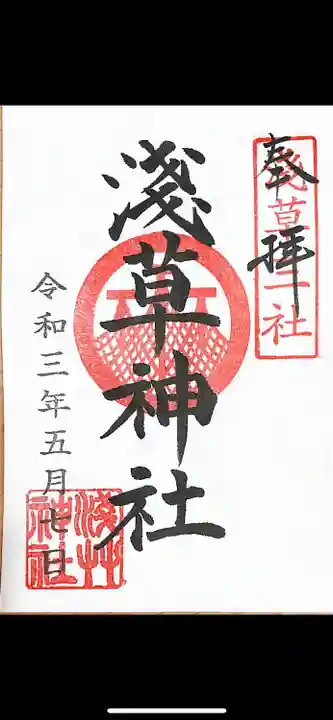 奉拝
淺草三社
淺草神社
令和三年五月七日
浅草神社